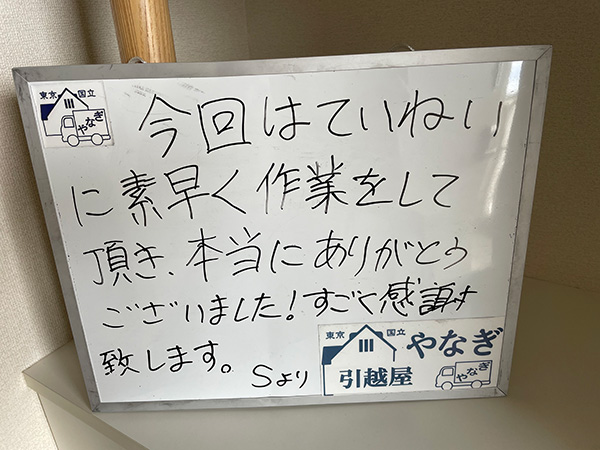 東京 国立
やなぎ
今回はていねい
に素早く作業をして
頂き、本当にありがとう
ございました！すごく感謝
致します。 Sより
東京 国立
やなぎ
引越屋
やなぎ